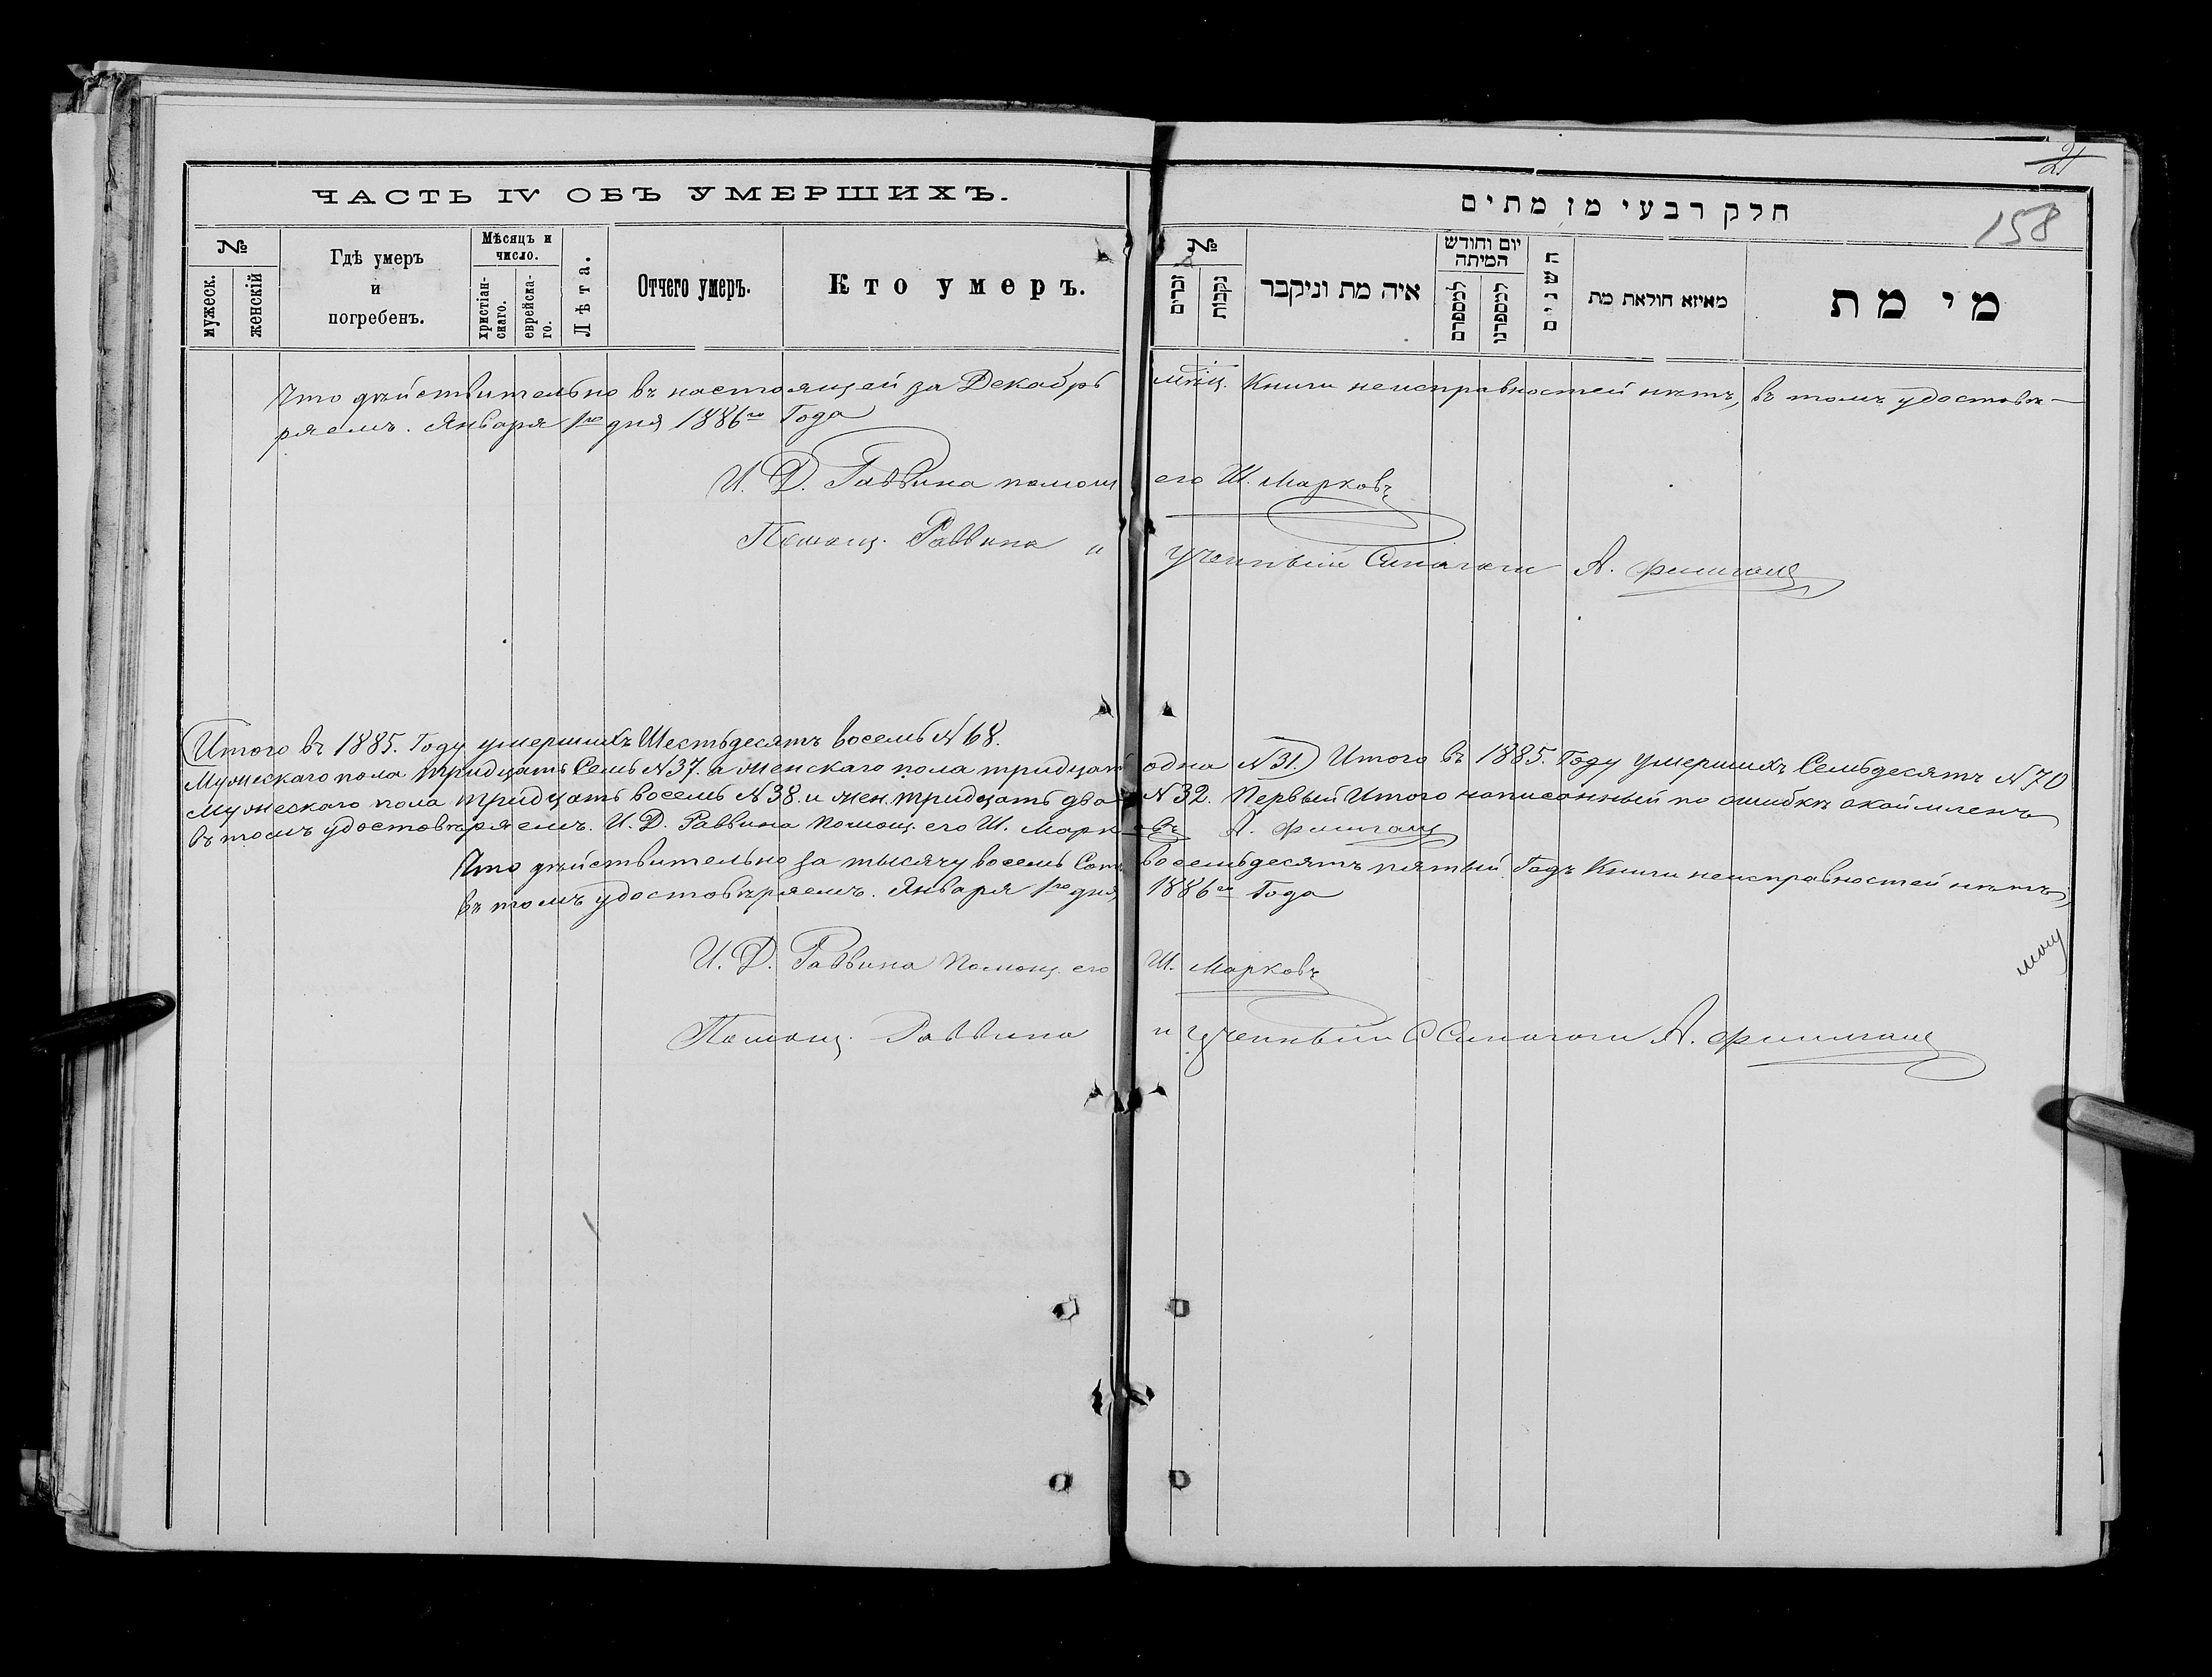 ЧАСТЬ IV ОБЪ УМЕРШИХЪ.
№
мужеск.
женскій
Гдѣ умеръ
и
погребенъ.
Мѣсяцъ и
число.
христіан-
скаго.
еврейска-
го.
Лѣта.
Отчего умеръ.
Кто умеръ.
21
חלק רבעי מן מתים
158
№
זכרים
נקבות
איה מת וניקבר
יום וחודש
המיתה
למספרם
למספרנו
השנים
מאיזא חולאת מת
מי מת
Что дѣйствительно въ настоящей за Декабрь мѣсц. Книги неисправностей нѣтъ, въ томъ удостовѣ-
ряемъ. Января 1го дня 1886го Года
И. Д. Раввина помощ его Ш. Марковъ
Помощ. Раввина и ученный Синагоги А.
Итого въ 1885. Году умершихъ Шестьдесятъ восемь №68.
Мужескаго пола тридцать Семь №37. а женскаго пола тридцать одна №31.) Итого въ 1885. Году умершихъ Семьдесятъ №70
Мужескаго пола тридцать восемь №38. и жен. тридцать два №32. Первый Итого написанный по ошибкѣ окоймленъ
въ томъ удостовѣряемъ. И. Д. Раввина помощ. его Ш. Марковъ А.
Что дѣйствительно за тысячу восемь Сотъ восемьдесятъ пятый Годъ Книги неисправностей нѣтъ,
въ томъ удостовѣряемъ. Января 1го дня 1886го Года
И. Д. Раввина Помощ. его Ш. Марковъ
Помощ. Раввина и ученный Синагоги А.